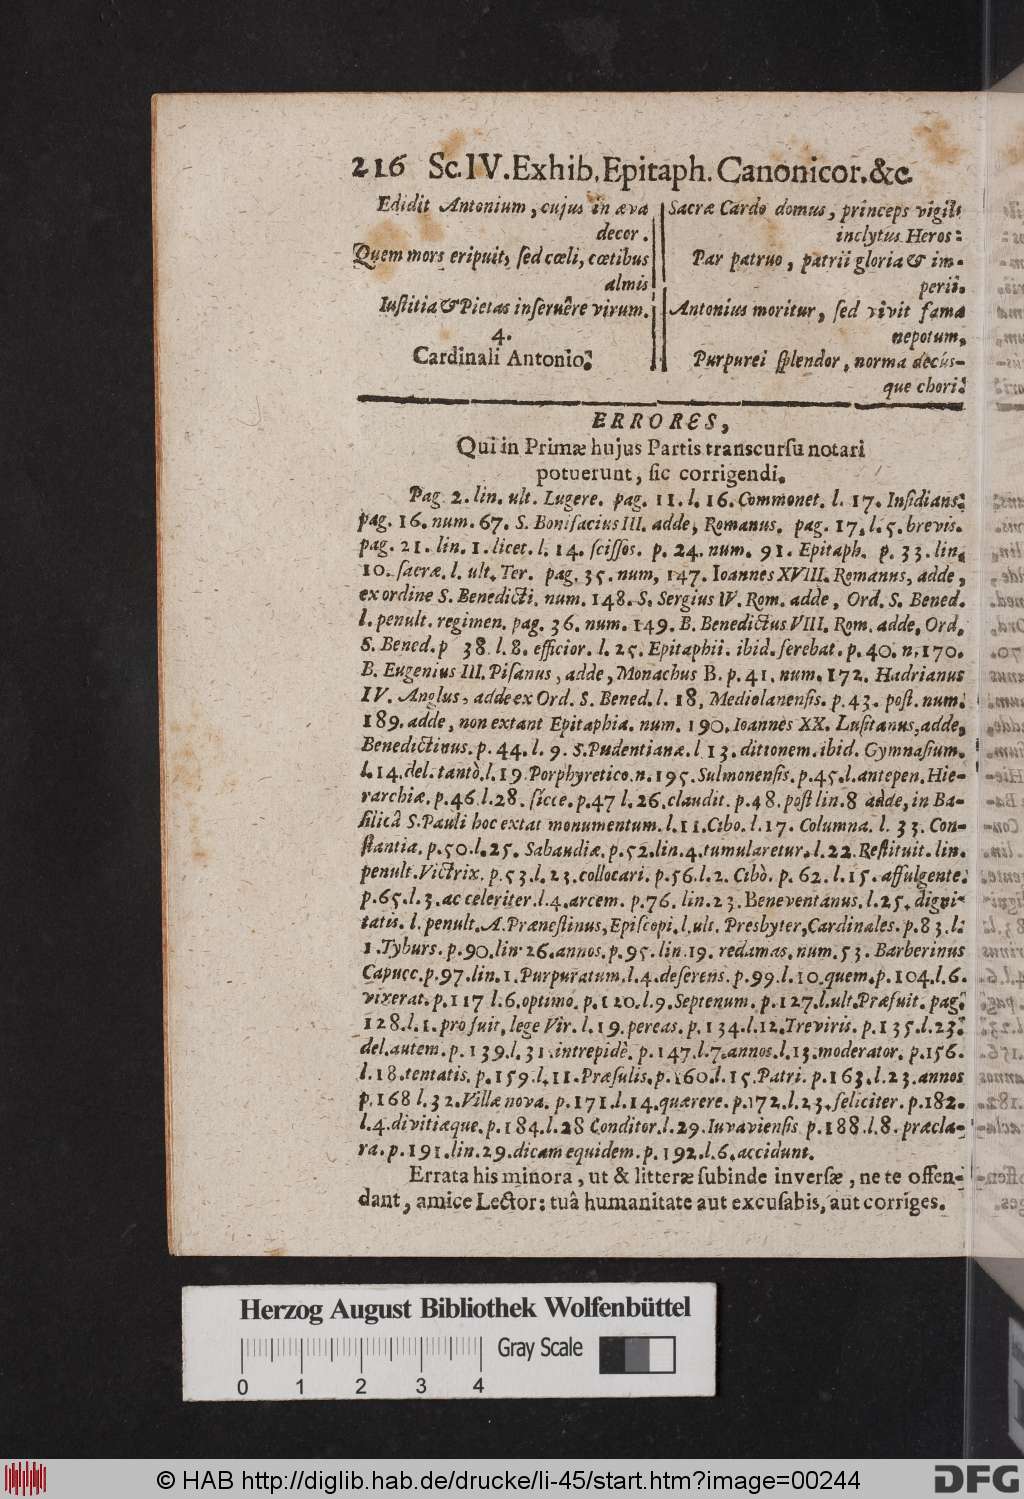 216 Sc. IV. Exhib. Epitaph. Canonicor. &c.
Edidit Antonium, cujus in æva
decor.
Quem mors eripuit, sed cœli, cœtibus
almis
Iuſtitia & Pietas inſeruêre virum.
4.
Cardinali Antonio.
Sacræ Cardo domus, princeps vigil,
inclytus Heros:
Par patruo, patrii gloria & im-
perii.
Antonius moritur, ſed vivit fama
nepotum,
Purpurei ſplendor, norma decúſ-
que chori.
ERRORES,
Qui in Primæ hujus Partis transcurſu notari
potuerunt, ſic corrigendi.
Pag. 2. lin. ult. Lugere. pag. 11. l. 16. Commonet. l. 17. Inſidians.
pag. 16. num. 67. S. Bonifacius III. adde, Romanus. pag. 17. l. 5. brevis.
pag. 21. lin. 1. licet. l. 14. ſciſſos. p. 24. num. 91. Epitaph. p. 33. lin.
10. ſacræ. l. ult. Ter. pag. 35. num, 147. Ioannes XVIII. Romanus, adde,
ex ordine S. Benedicti. num. 148. S. Sergius IV. Rom. adde, Ord. S. Bened.
l. penult. regimen. pag. 36. num. 149. B. Benedictus VIII. Rom. adde, Ord.
S. Bened. p 38. l. 8. efficior. l. 25. Epitaphii. ibid. ferebat. p. 40. n. 170.
B. Eugenius III. Piſanus, adde, Monachus B. p. 41. num. 172. Hadrianus
IV. Anglus, adde ex Ord. S. Bened. l. 18. Mediolanenſis. p. 43. poſt. num.
189. adde, non extant Epitaphia. num. 190. Ioannes XX. Luſitanus, adde,
Benedictinus. p. 44. l. 9. S. Pudentianæ. l 13. ditionem. ibid. Gymnaſium.
l. 14. del. tantò. l. 19. Porphyretico. n. 195. Sulmonenſis. p. 45. l. antepen. Hie-
rarchiæ. p. 46. l. 28. ſicce. p. 47 l. 26. claudit. p. 48. poſt lin. 8 adde, in Ba-
ſilicâ S. Pauli hoc extat monumentum. l. 11. Cibo. l. 17. Columna. l. 33. Con-
ſtantia. p. 50. l. 25. Sabaudiæ. p. 52. lin. 4. tumularetur. l. 22. Reſtituit. lin.
penult. Victrix. p. 53. l. 23. collocari. p. 56. l. 2. Cibò. p. 62. l. 15. affulgente.
p. 65. l. 3. ac celeriter. l. 4. arcem. p. 76. lin. 23. Beneventanus. l. 25. digni-
tatis. l. penult. A. Præneſtinus, Epiſcopi. l. ult. Presbyter, Cardinales. p. 83. l.
1. Tyburs. p. 90. lin 26. annos. p. 95. lin. 19. redamas. num. 53. Barberinus
Capucc. p. 97. lin. 1. Purpuratum. l. 4. deferens. p. 99. l. 10. quem. p. 104. l. 6.
vixerat. p. 117 l. 6. optimo. p. 120. l. 9. Septenum. p. 127. l. ult. Præfuit. pag.
128. l. 1. pro fuit, lege Vir. l. 19. pereas. p. 134. l. 12. Treviris. p. 135. l. 23.
del. autem. p. 139. l. 31. intrepidè. p. 147. l. 7. annos. l. 13. moderator. p. 156.
l. 18. tentatis. p. 159. l. 11. Præſulis. p. 160. l. 15. Patri. p. 163. l. 23. annos
p. 168 l. 32. Villæ nova. p. 171. l. 14. quærere. p. 172. l. 23. feliciter. p. 182.
l. 4. divitiæque. p. 184. l. 28 Conditor. l. 29. Iuvavienſis. p. 188. l. 8. præcla-
ra. p. 191. lin. 29. dicam equidem. p. 192. l. 6. accidunt.
Errata his minora, ut & litteræ ſubinde inverſæ, ne te offen-
dant, amice Lector: tuâ humanitate aut excuſabis, aut corriges.
Herzog August Bibliothek Wolfenbüttel
Gray Scale
0 1 2 3 4
© HAB http://diglib.hab.de/drucke/li-45/start.htm?image=00244
DFG